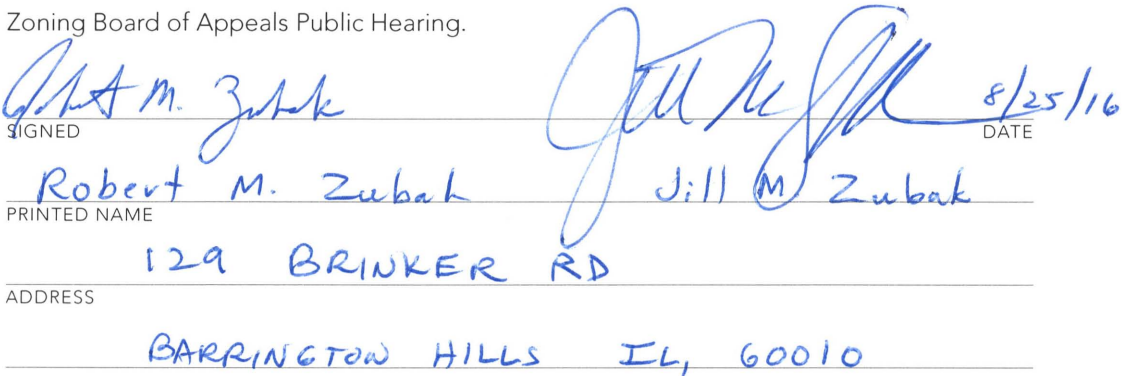 Zoning Board of Appeals Public Hearing.
Robert M. Zubak 8/25/16
SIGNED DATE
Robert M. Zubak Jill M Zubak
PRINTED NAME
129 BRINKER RD
ADDRESS
BARRINGTON HILLS IL, 60010